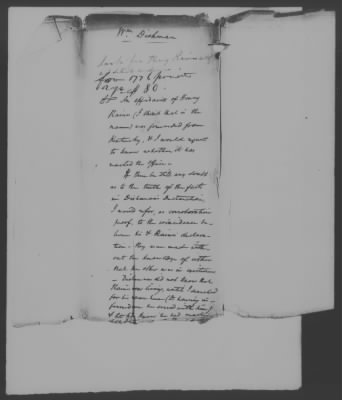 Wm Dishman
from 1776
age of 80.
An affidavit of Henry
Rains (I think that is the
name) was forwarded from
Kentucky, & I would request
to know whether it has
reached the office.—
If there be still any doubt
as to the truth of the facts
in Dishman's Declaration,
I would refer, as corroborative
proof, to the coincidence be-
tween his & Rains' declara-
tion. They were made with-
out the knowledge of either
that the other was in existence
— Dishman did not know that
Rains was living, until I
for he
he served with him)
& let him know he had